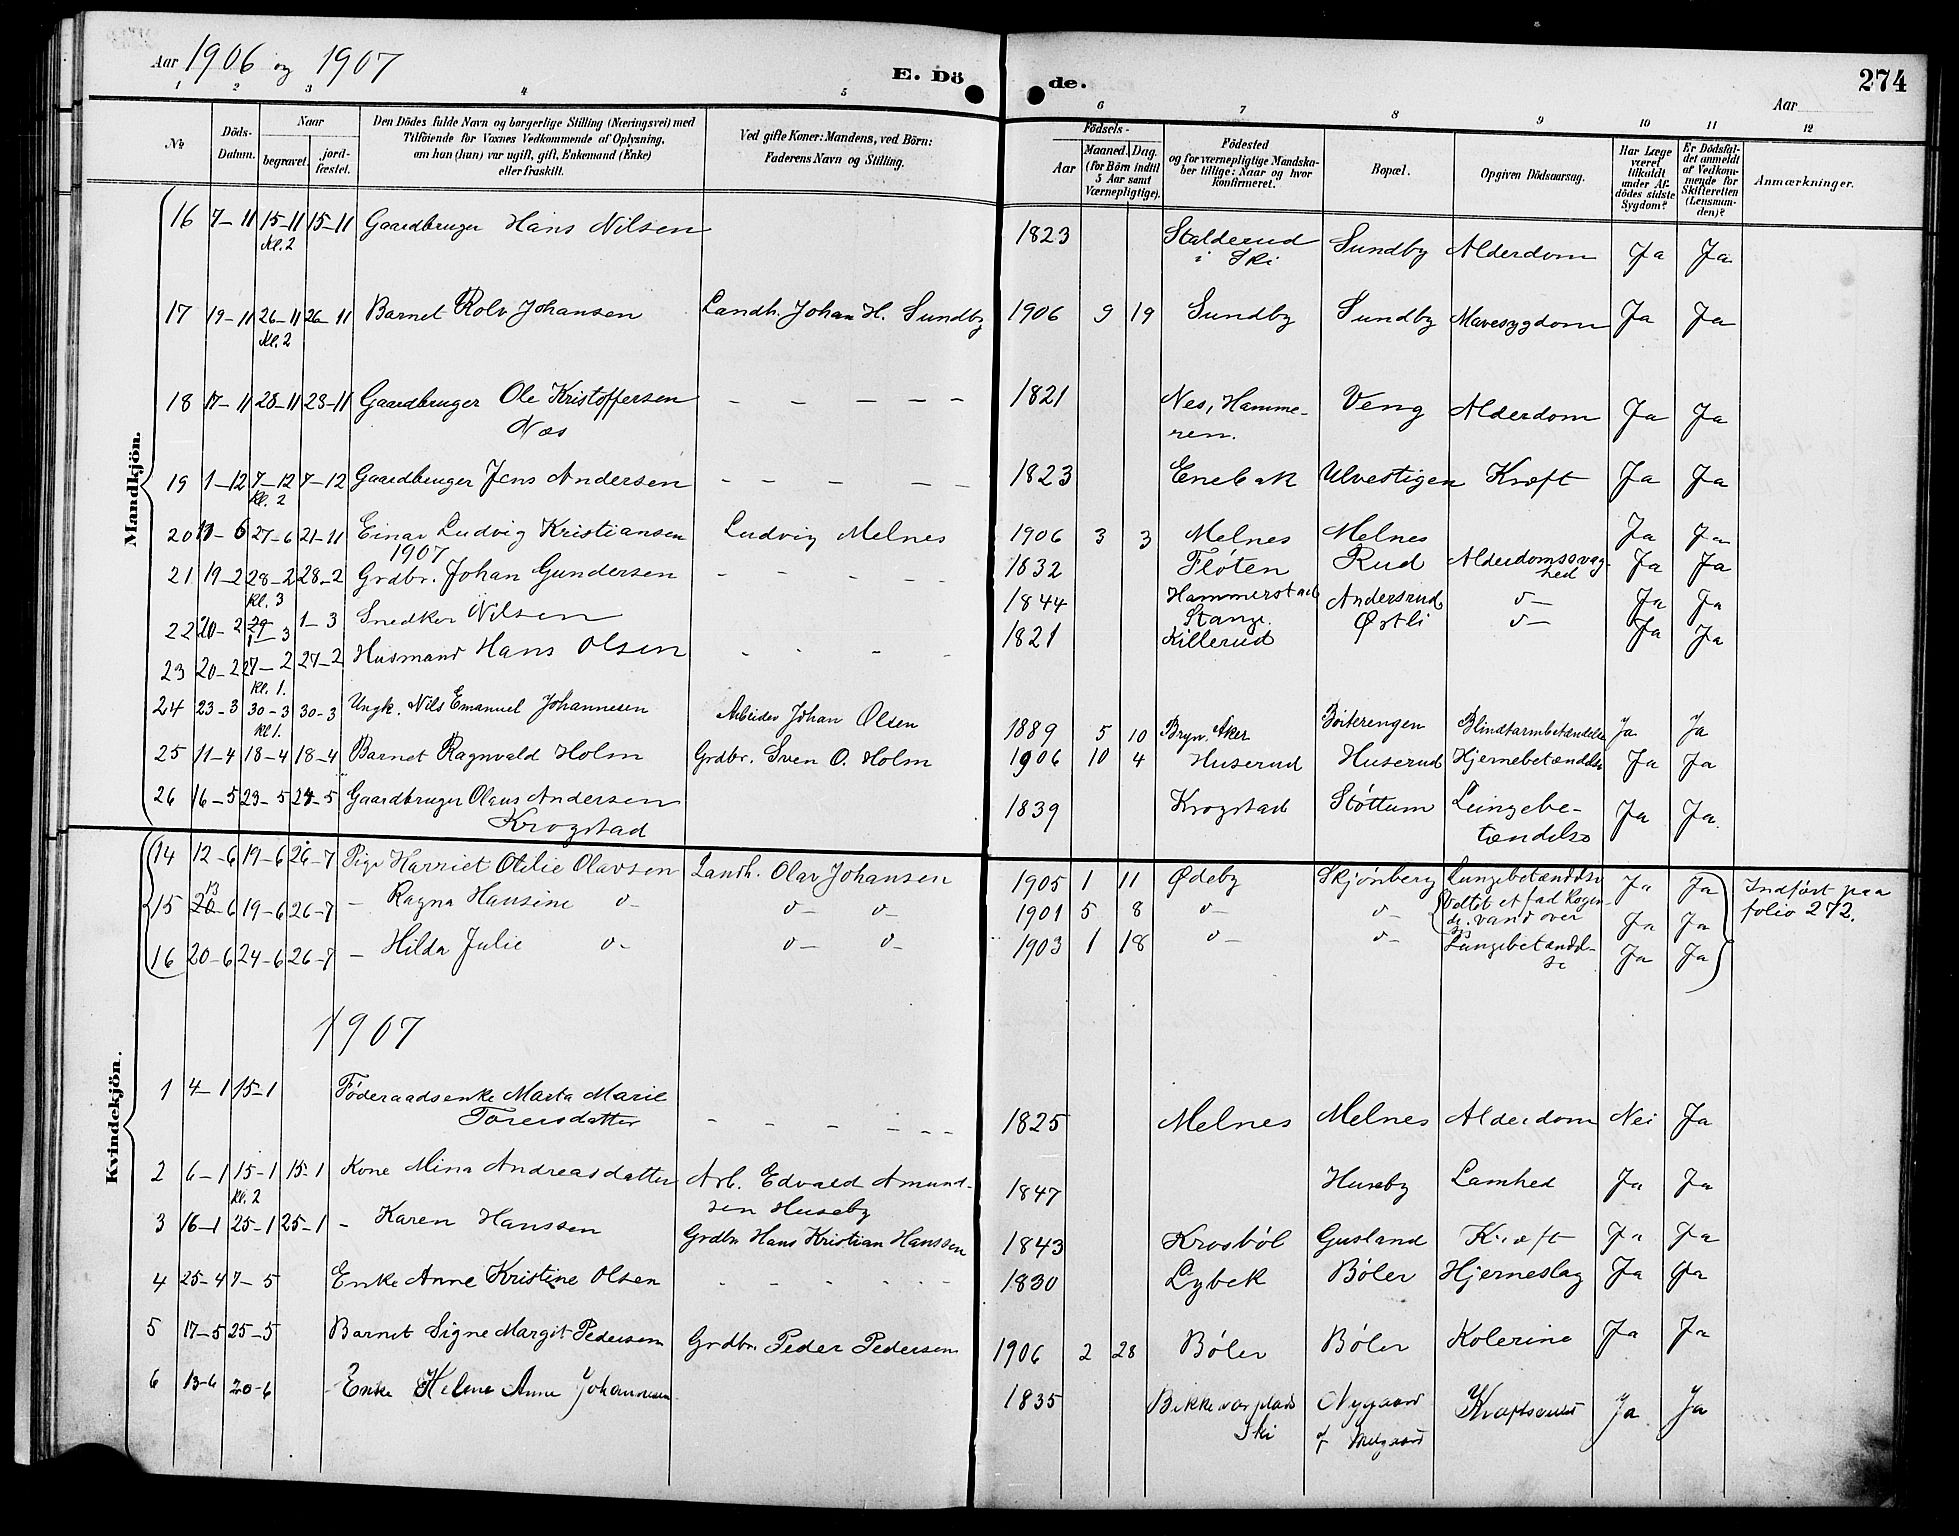 Aar 1906 og 1907 E. Dö de. Aar 274
1 2 3 4 5 6 7 8 9 10 11 12
No. Döds-Datum. Naar begravet. jord-fæstet. Den Dödes fulde Navn og borgerlige Stilling (Næringsvei) med Tilföiende for Voxnes Vedkommende af Oplysning, om han (hun) var ugift, gift, Enkemand (Enke) eller fraskilt. Ved gifte Koner: Mandens, ved Börn: Faderens Navn og Stilling. Födsels- Aar Maaned. Dag. (for Börn indtil 5 Aar samt Værnepligtige). Födested og for værnepligtige Mandskaber tillige: Naar og hvor Konfirmeret. Bopæl. Opgiven Dödsaarsag. Har Læge været tilkaldt under Afdödes sidste Sygdom? Er Dödsfaldet anmeldt af Vedkommende for Skifteretten (Lensmanden)? Anmærkninger.
Mandkjön.
16 7-11 15-11 Kl. 2 15-11 Gaardbruger Hans Nilsen 1823 Stalderud i Ski Sundby Alderdom Ja Ja
17 19-11 26-11 Kl. 2 26-11 Barnet Rolv Johansen Landh. Johan H. Sundby 1906 9 19 Sundby Sundby Mavesygdom Ja Ja
18 17-11 23-11 23-11 Gaardbruger Ole Kristoffersen Næs - - - - - 1821 Nes, Hammeren. Veng Alderdom Ja Ja
19 1-12 7-12 Kl. 2 7-12 Gaardbruger Jens Andersen - - - - - 1823 Enebak Ulvestigen Kræft Ja Ja
20 6 27-6 21-11 Einar Ludvig Kristiansen Ludvig Melnes 1906 3 3 Melnes Melnes Ja Ja
1907
21 19-2 28-2 Kl. 3 28-2 Grdbr. Johan Gundersen - - - - - 1832 Fløten Rud Alderdomssvaghed Ja Ja
22 20-2 1-3 1-3 Snedker Nilsen 1844 Hammerstad Stange. Andersrud Østli o- Ja Ja
23 20-2 27-2 Kl. 1. 27-2 Husmand Hans Olsen - - - - 1821 Killerud o- Ja Ja
24 23-3 30-3 Kl 1. 30-3 Ungk. Nils Emanuel Johannesen Arbeider Johan Olsen 1889 5 10 Bryn. Aker Bøiterengen Blindtarmbetændelse Ja Ja
25 11-4 18-4 18-4 Barnet Ragnvald Holm Grdbr. Sven O. Holm 1906 10 4 Huserud Huserud Hjernebetændelse Ja Ja
26 16-5 23-5 23-5 Gaardbruger Olaus Andersen Krogstad 1839 Krogstad Støttum Lungebetændelse Ja Ja.
Kvindekjön.
14 12-6 19-6 26-7 Pige Harriet Otilie Olavsen Landh. Olav Johansen 1905 1 11 Ødeby Skjønberg Lungebetændelse Ja Ja Indført paa folio 272.
15 13-6 19-6 26-7 - Ragna Hansine o- o- o- 1901 5 8 o- o- Veltet et fad kogende vand over sig Ja Ja
16 20-6 24-6 26-7 - Hilda Julie o- o- o- 1903 1 18 o- o- Lungebetændelse Ja Ja
1907
1 4-1 15-1 Føderaadsenke Marta Marie Toreisdatter - - - - - - 1825 Melnes Melnes Alderdom Nei Ja
2 6-1 15-1 Kl. 2 15-1 Kone Mina Andreasdatter Arb. Edvald Amundsen Huseby 1847 Huseby Lamhed Ja Ja
3 16-1 25-1 25-1 - Karen Hanssen Grdbr Hans Kristian Hanssen 1843 Krosbøl Gusland Kræft Ja Ja
4 25-4 7-5 Enke Anne Kristine Olsen - - - - - 1830 Lybek Bøler Hjerneslag Ja Ja
5 17-5 25-5 Barnet Signe Margit Pedersen Grdbr. Peder Pedersen 1906 2 28 Bøler Bøler Kolerine Ja Ja
6 13-6 20-6 - Enke Helene Anne Johannesen 1835 plads Ski Nygaard Ja Ja